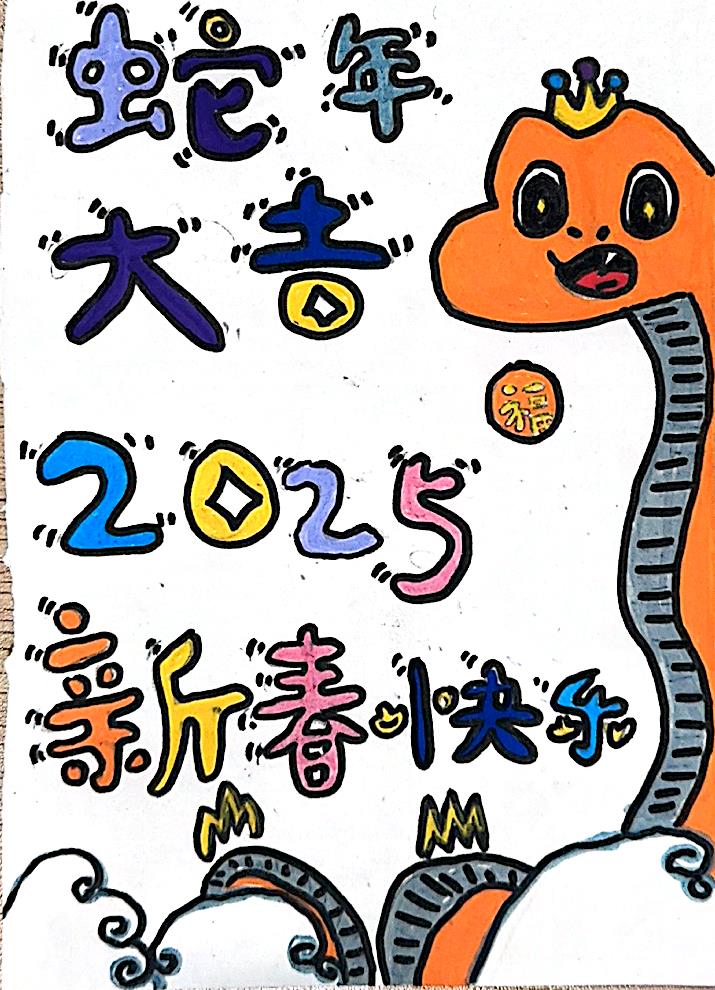 蛇年
大吉
福
2025
新春快乐